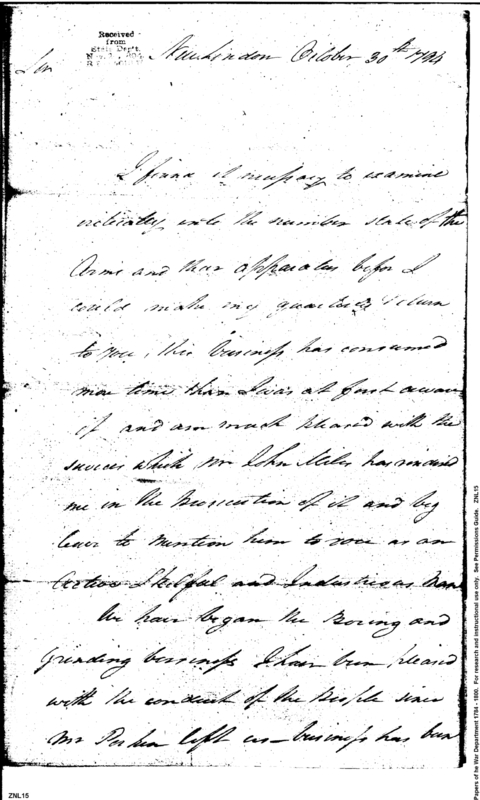 Received
from
State Dept.
Sir
New London October 30th 1794
I find it necessary to examine
intricately into the number state of the
Arms and their apparatus before I
could make my quarterly return
to you, this business has consumed
more time than I was at first aware
of and am much pleased with the
services which Mr John Miles has rendered
me in the Prosecution of it and beg
leave to mention him to you as an
Active Skilful and Industrious Man
We have began the Boring and
Grinding business I have been pleased
with the conduct of the People since
Mr Perkin left us – business has been
ZNL15
Papers of he War Department 1784 - 1800. For research and instructional use only. See Permissions Guide. ZNL15